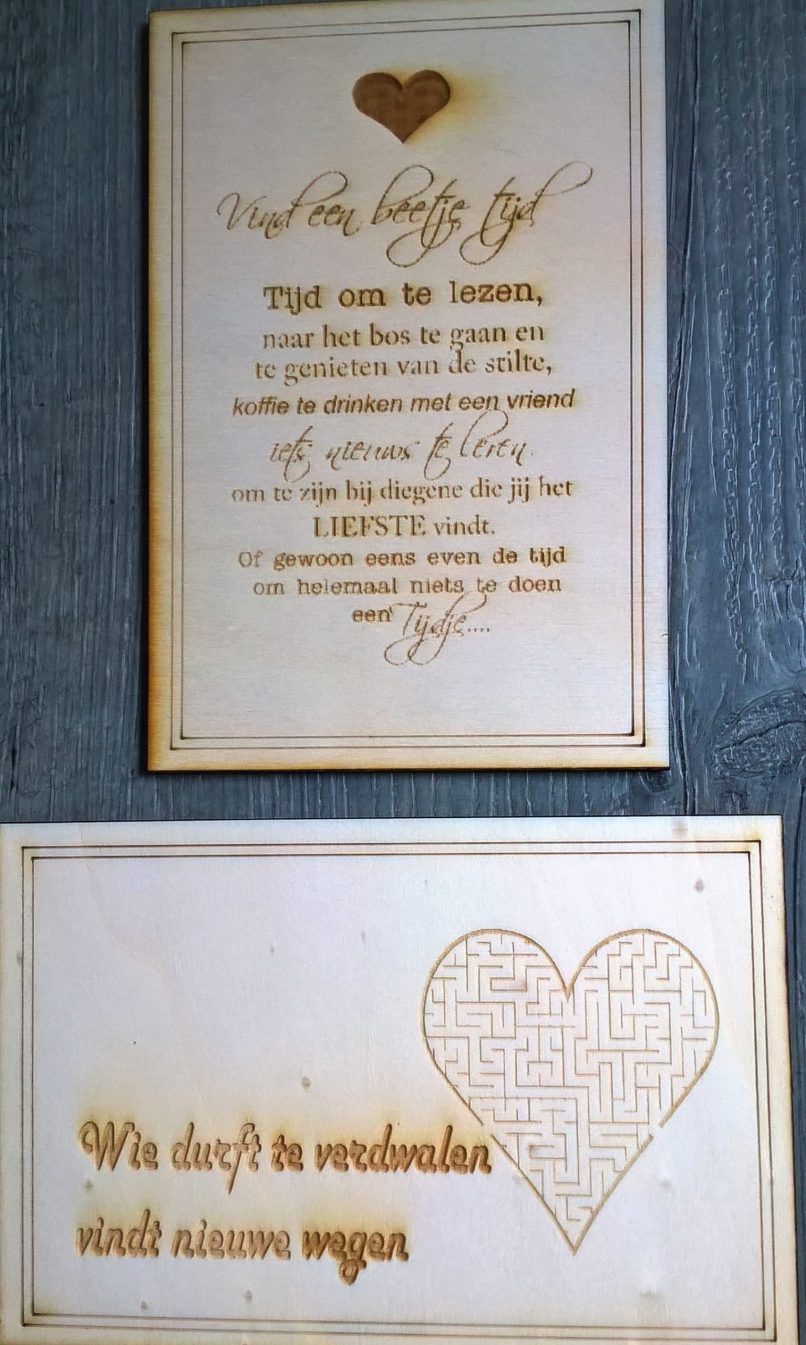 Vind een beetje tijd
Tijd om te lezen,
naar het bos te gaan en
te genieten van de stilte,
koffie te drinken met een vriend
iets nieuws te leren.
om te zijn bij diegene die jij het
LIEFSTE vindt.
Of gewoon eens even de tijd
om helemaal niets te doen
een Tijdje....
Wie durft te verdwalen
vindt nieuwe wegen